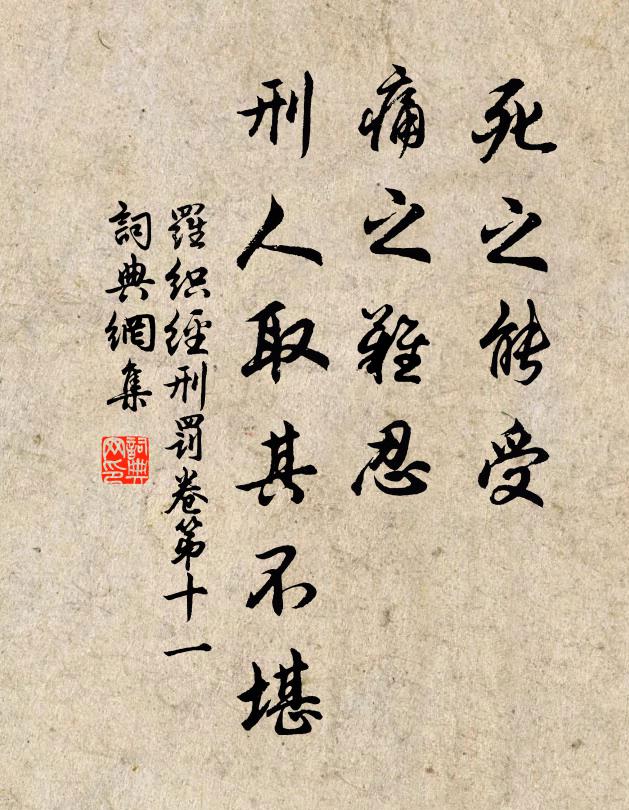 死之能受
痛之難忍
刑人取其不堪
羅織經刑罰卷第十一
詞典網集
詞典
网印